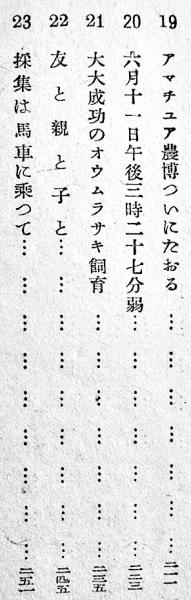 19 アマチユア農博ついにたおる……………………二一一
20 六月十一日午後三時二十七分弱…………………二二三
21 大大成功のオウムラサキ飼育……………………二三五
22 友と親と子と…………………………二四五
23 採集は馬車に乗つて…………………………二五一